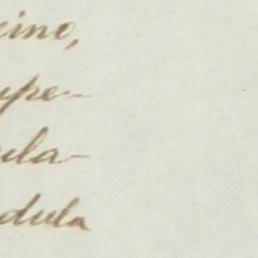 eine,
upe-
ula-
dula